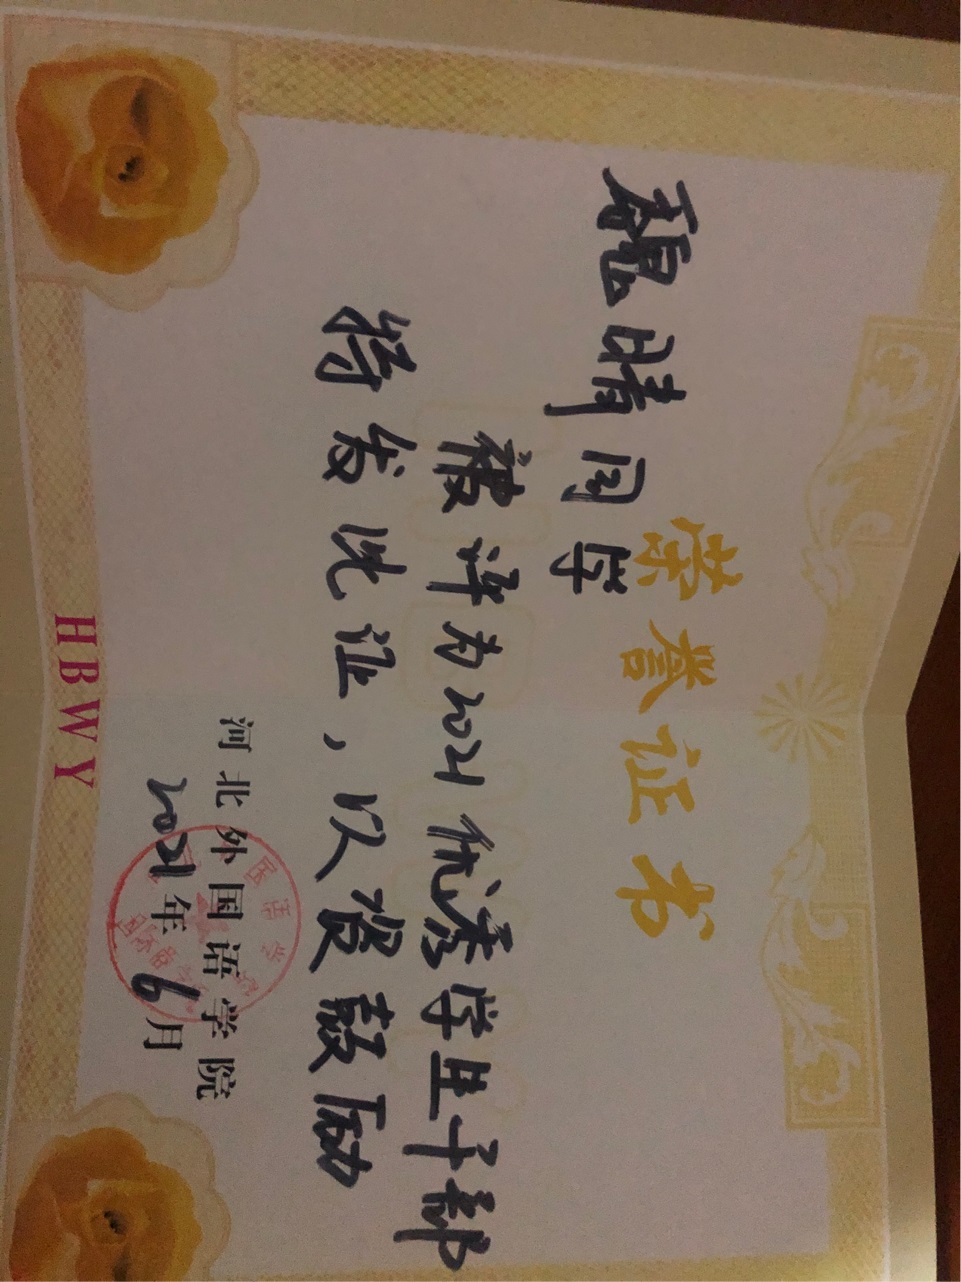 荣誉证书
魏晴同学
被评为2021优秀学生干部
特发此证，以资鼓励
河北外国语学院
2021年6月
HBWY